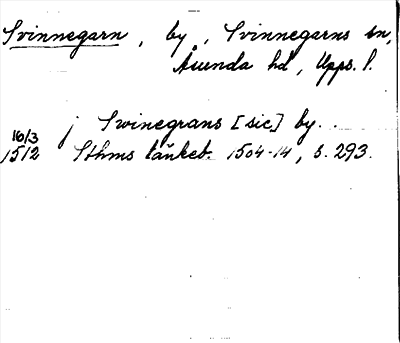 Svinnegarn, by, Svinnegarns sn,
Åsunda hd, Upps. l.
j Swinegrans [sic] by. .
16/3
1512 Sthms tänkeb. 1504-14, s. 293.